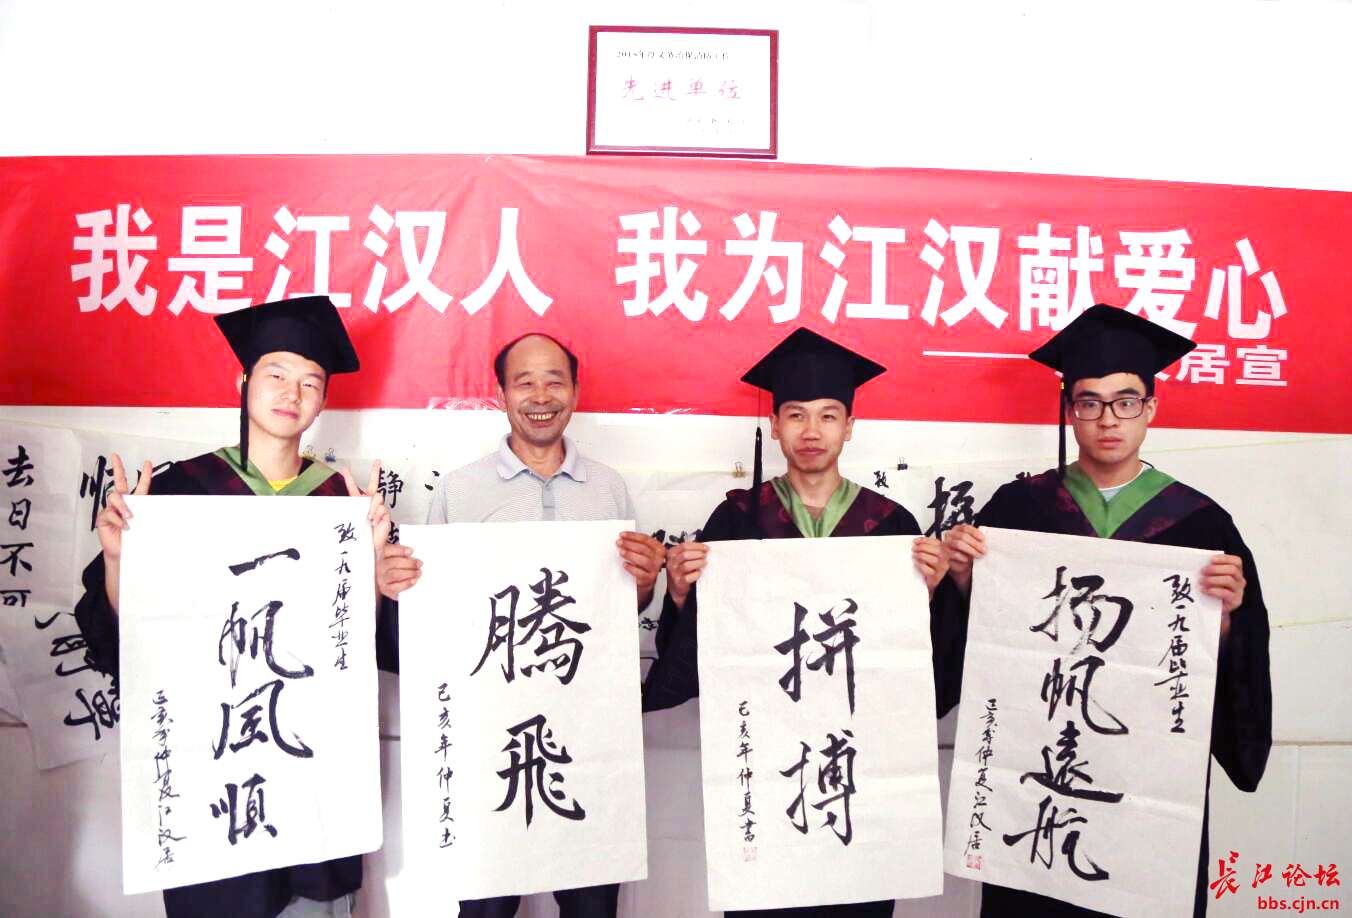 先进单位
我是江汉人 我为江汉献爱心
居宣
去日不可
静
致一九届毕业生
一帆风顺
己亥年仲夏江汉居
騰飛
己亥年仲夏书
拼搏
己亥年仲夏書
致一九届毕业生
扬帆遠航
己亥年仲夏江汉居
长江论坛
bbs.cjn.cn